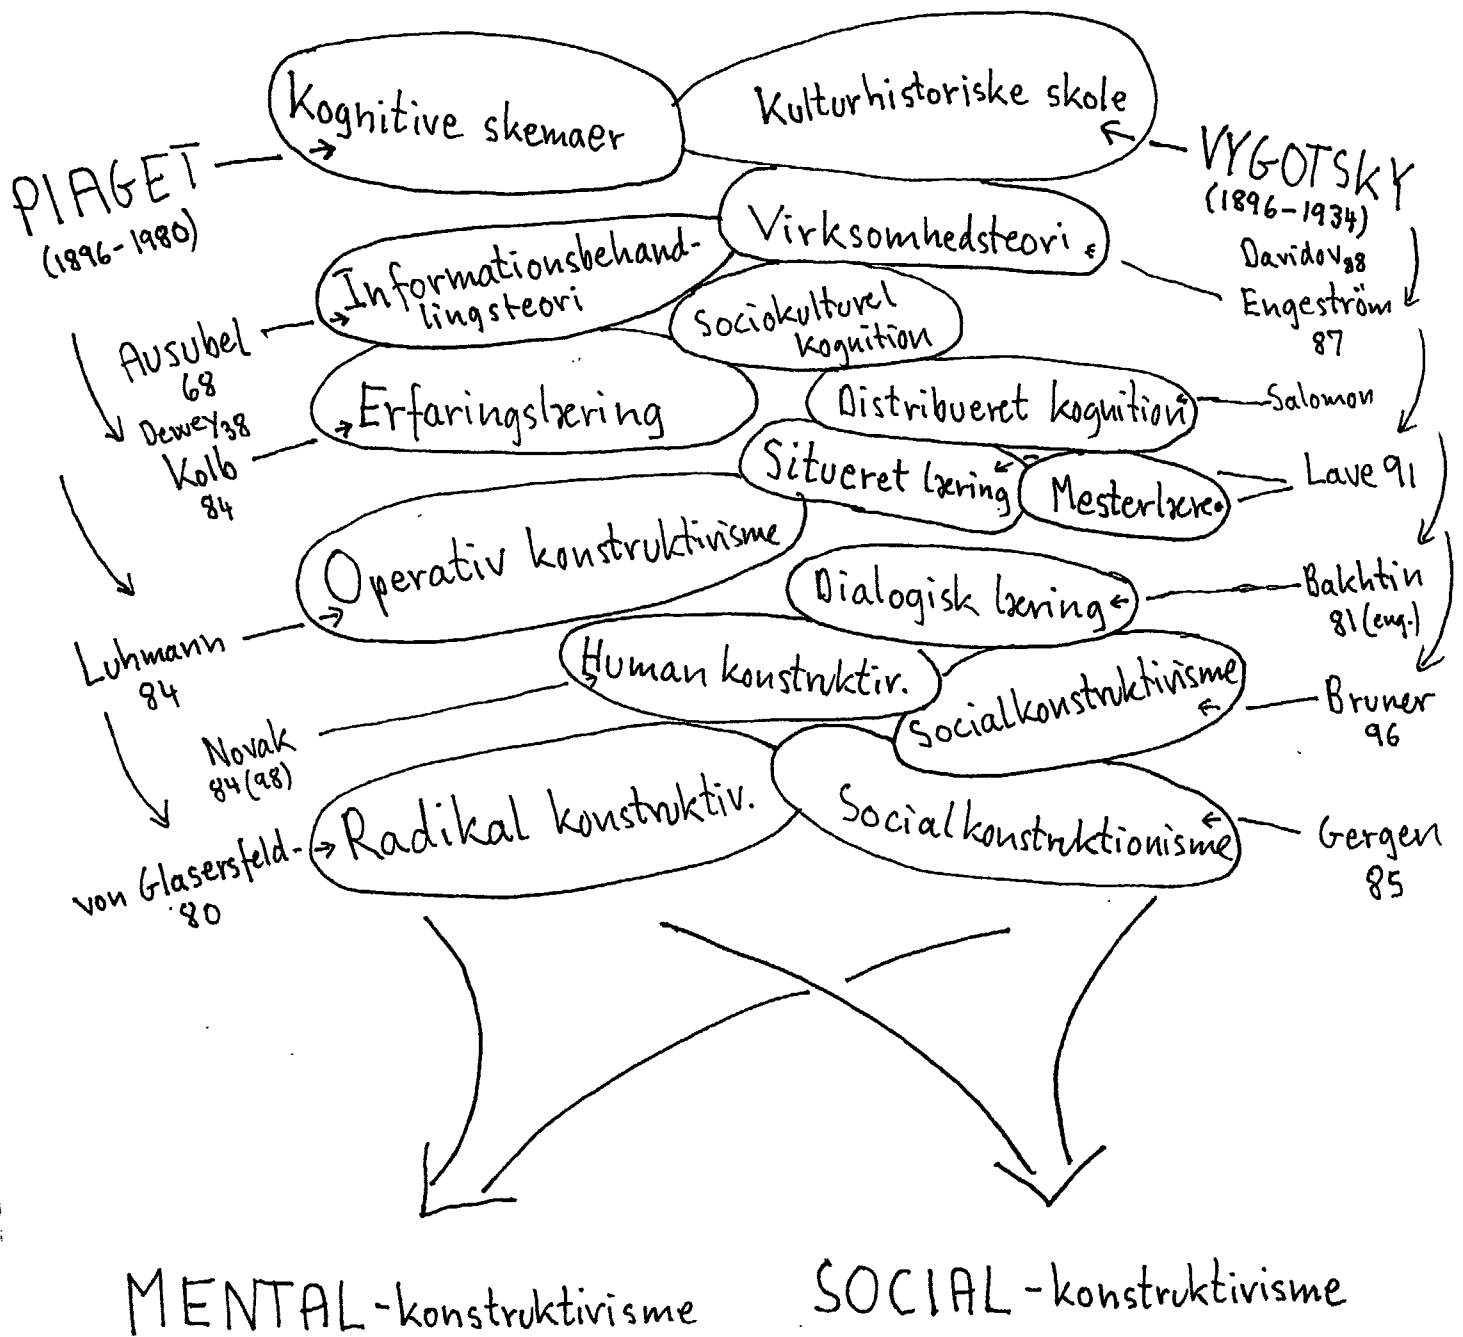 Kognitive skemaer
Kulturhistoriske skole
PIAGET
(1896-1980)
VYGOTSKY
(1896-1934)
Virksomhedsteori
Davidov 88
Engeström
87
Informationsbehand-
lingsteori
Sociokulturel
kognition
Ausubel
68
Dewey 38
Kolb
84
Erfaringslæring
Distribueret kognition
Salomon
Situeret læring
Mesterlære
Lave 91
Operativ konstruktivisme
Dialogisk læring
Bakhtin
81 (eng.)
Luhmann
84
Human konstruktiv.
Socialkonstruktivisme
Bruner
96
Novak
84 (98)
Radikal konstruktiv.
Socialkonstruktionisme
Gergen
85
von Glasersfeld
80
MENTAL-konstruktivisme
SOCIAL-konstruktivisme